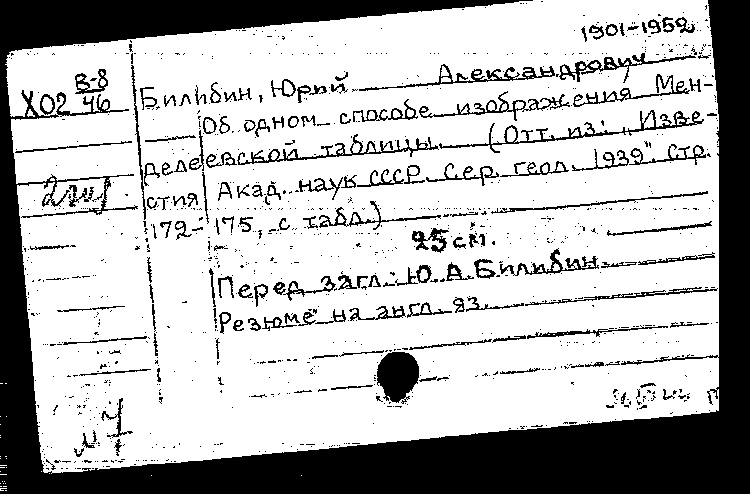 1901-1952
В-8
Х02 46
Билибин, Юрий Александрович
Об одном способе изображения Мен-
делеевской таблицы. (Отт. из: „Изве-
стия Акад. наук СССР. Сер. геол. 1939". Стр.
172-175, с табл.)
25 см.
Перед загл.: Ю. А. Билибин.
Резюме на англ. яз.